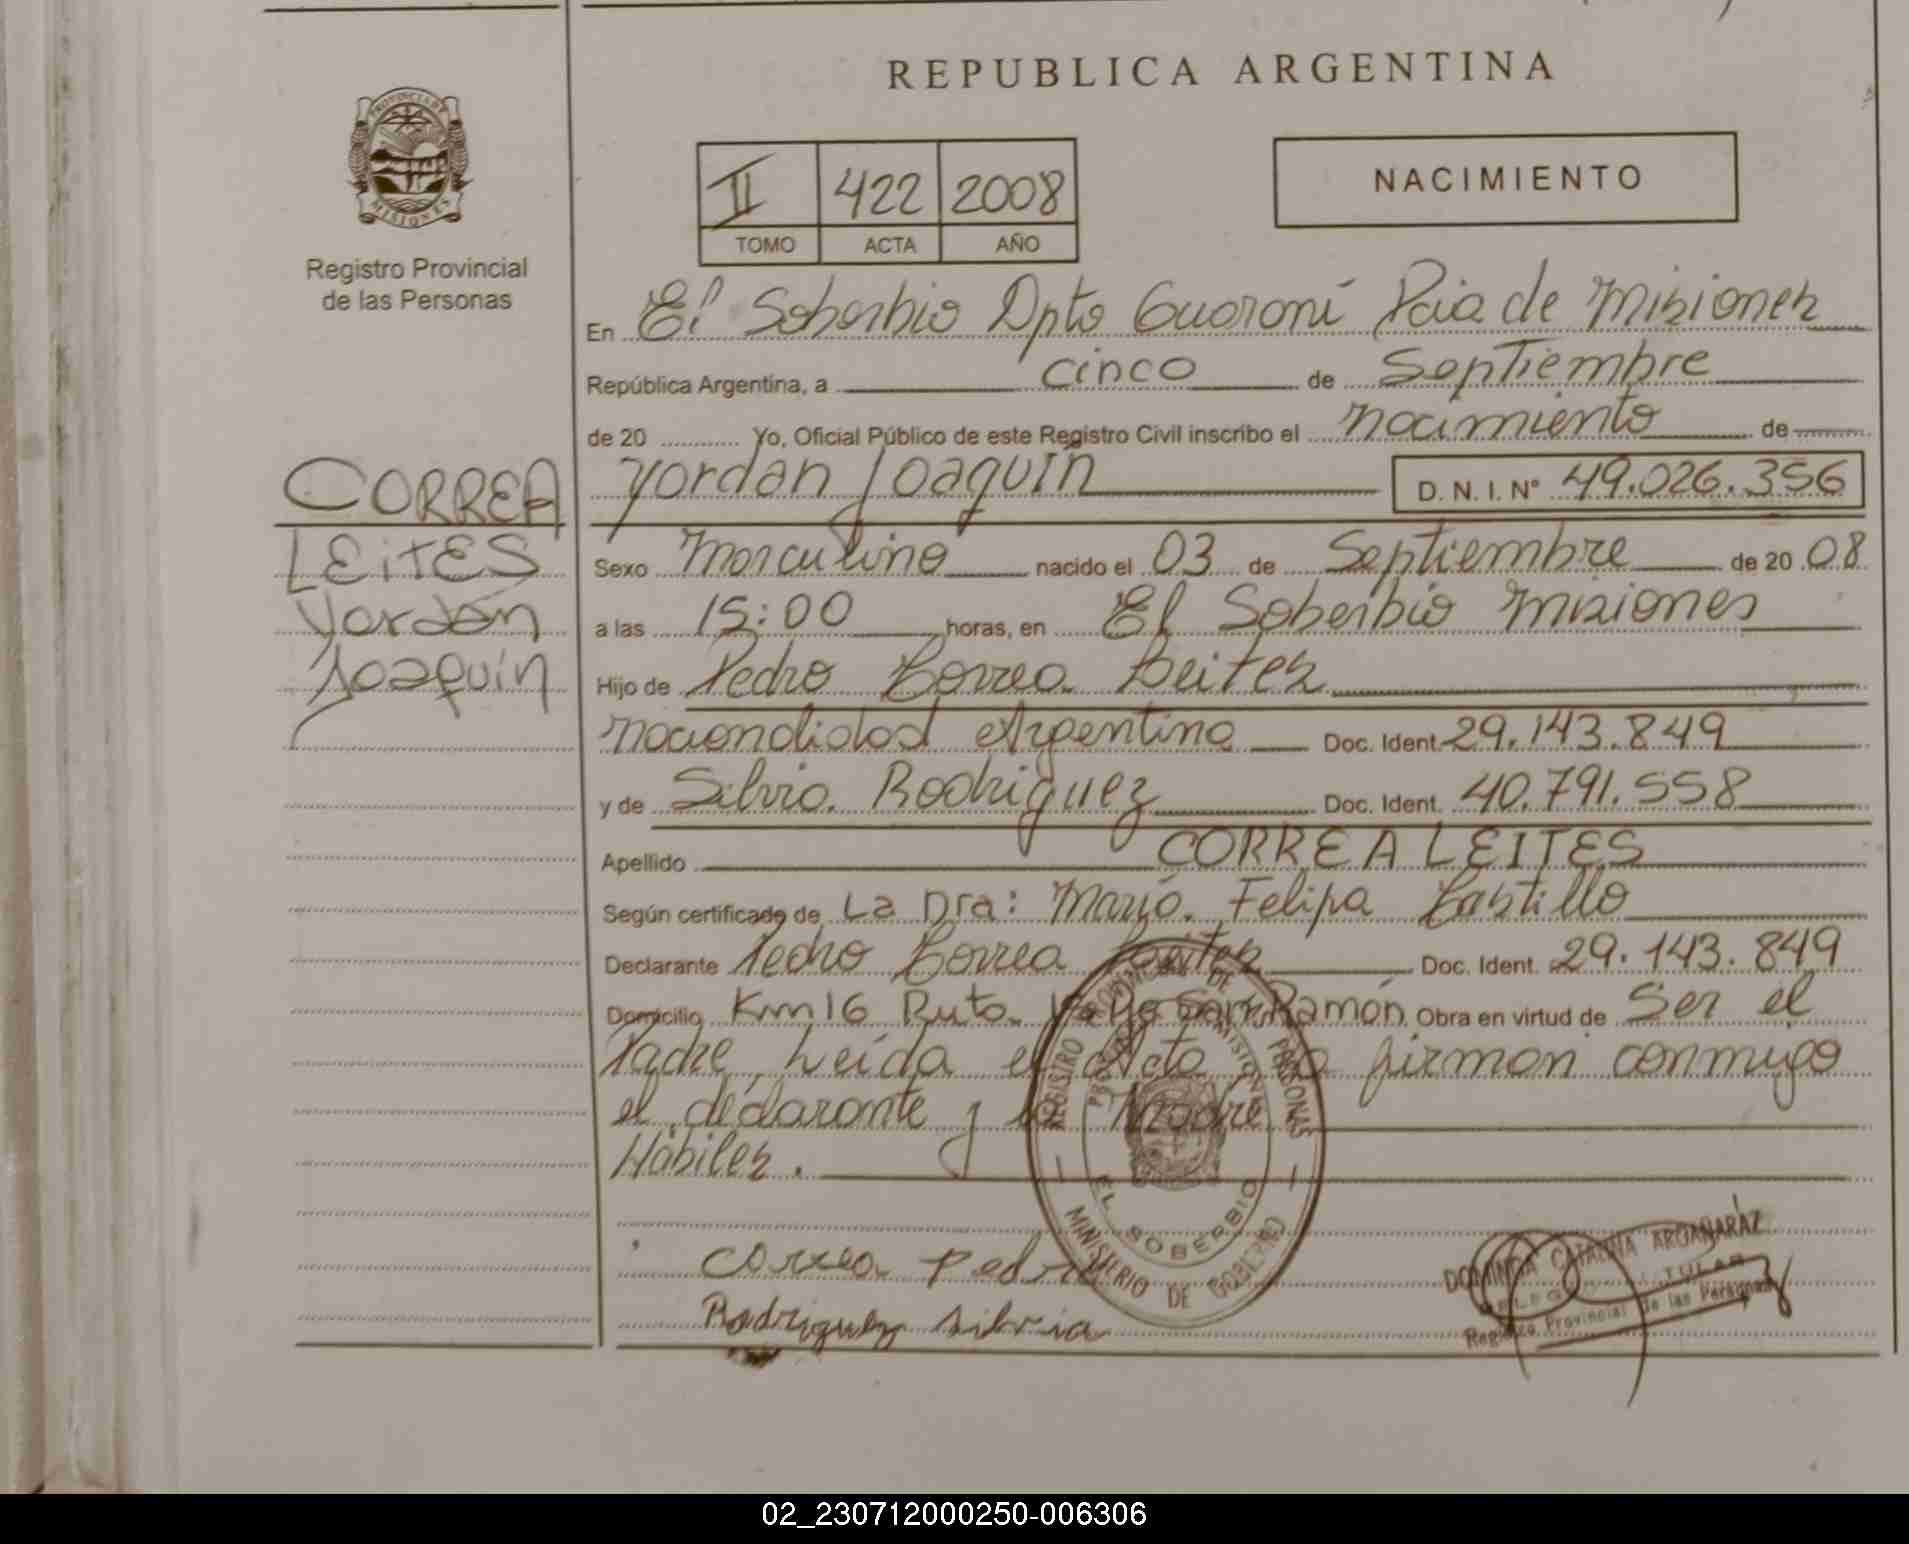 REPUBLICA ARGENTINA
PROVINCIA DE
MISIONES
Registro Provincial
de las Personas
II 422 2008
TOMO ACTA AÑO
NACIMIENTO
En El Soberbio Dpto Guaraní Pcia de Misiones
República Argentina, a cinco de Septiembre
de 20 ........... Yo, Oficial Público de este Registro Civil inscribo el nacimiento de
Yordan Joaquín D. N. I. N° 49.026.356
CORREA
LEITES
Yordán
Joaquín
Sexo Masculino nacido el 03 de Septiembre de 20 08
a las 15:00 horas, en El Soberbio Misiones
Hijo de Pedro Correa Leites
nacionalidad Argentina Doc. Ident. 29.143.849
y de Silvia Rodriguez Doc. Ident. 40.791.558
Apellido CORREA LEITES
Según certificado de La Dra: María Felipa Castillo
Declarante Pedro Correa Leites Doc. Ident. 29.143.849
Domicilio Km 16 Ruta San Ramón Obra en virtud de Ser el
Padre, Leída el Acta la firman conmigo
el declarante y la Madre
Hábiles.
REGISTRO PROVINCIAL DE LAS PERSONAS
EL SOBERBIO
MINISTERIO DE GOBIERNO
Correa Pedro
Rodriguez silvia
DOMINGA CATALINA ARGAÑARAZ
TITULAR
Registro Provincial de las Personas
02_230712000250-006306